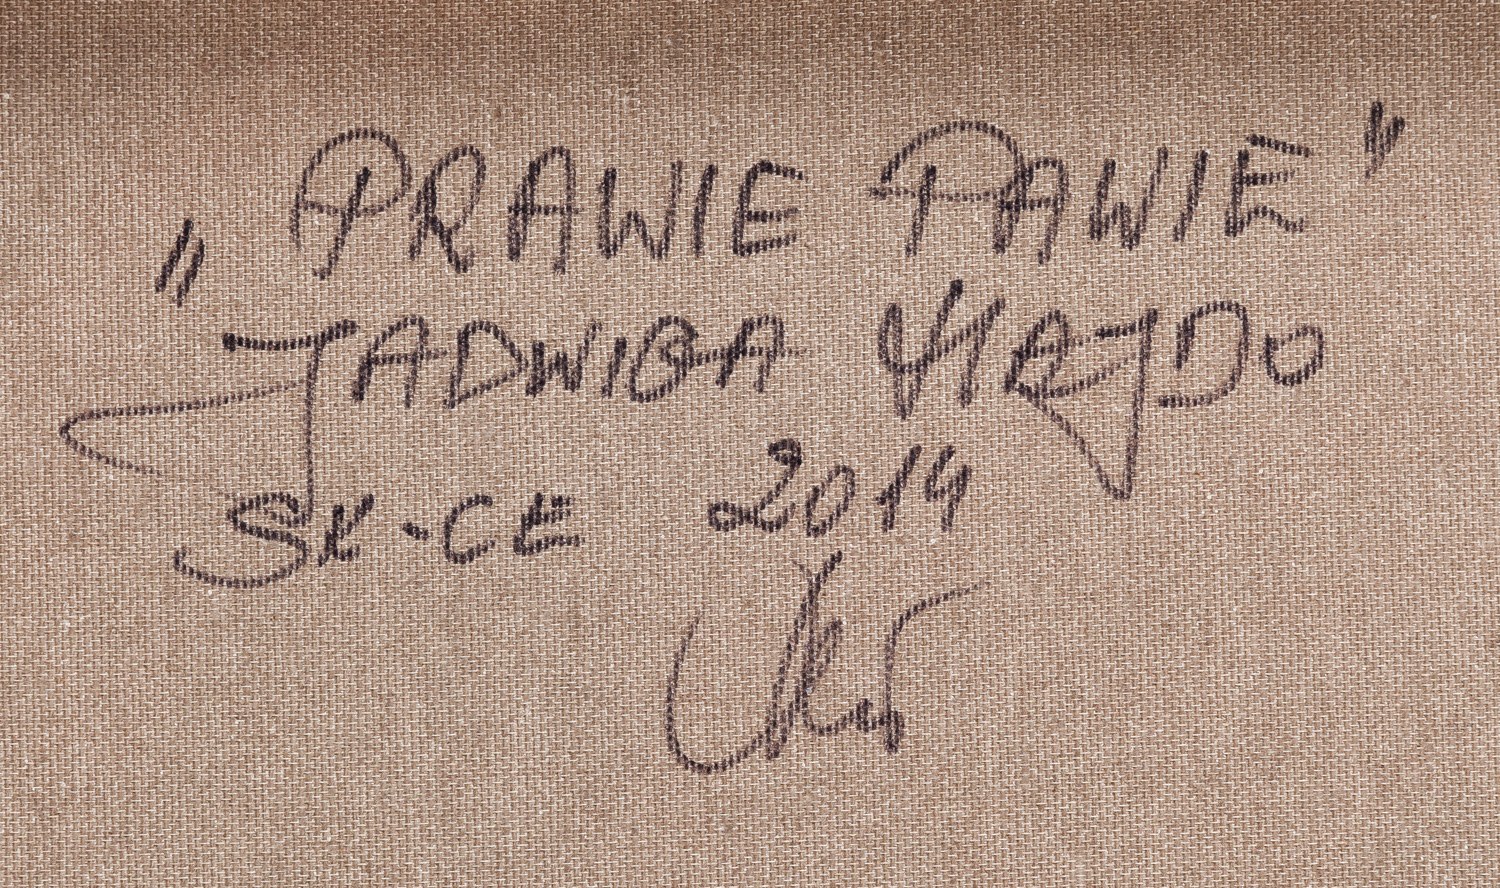 „PRAWIE PAWIE"
JADWIGA MAJDO
SK-CE 2014